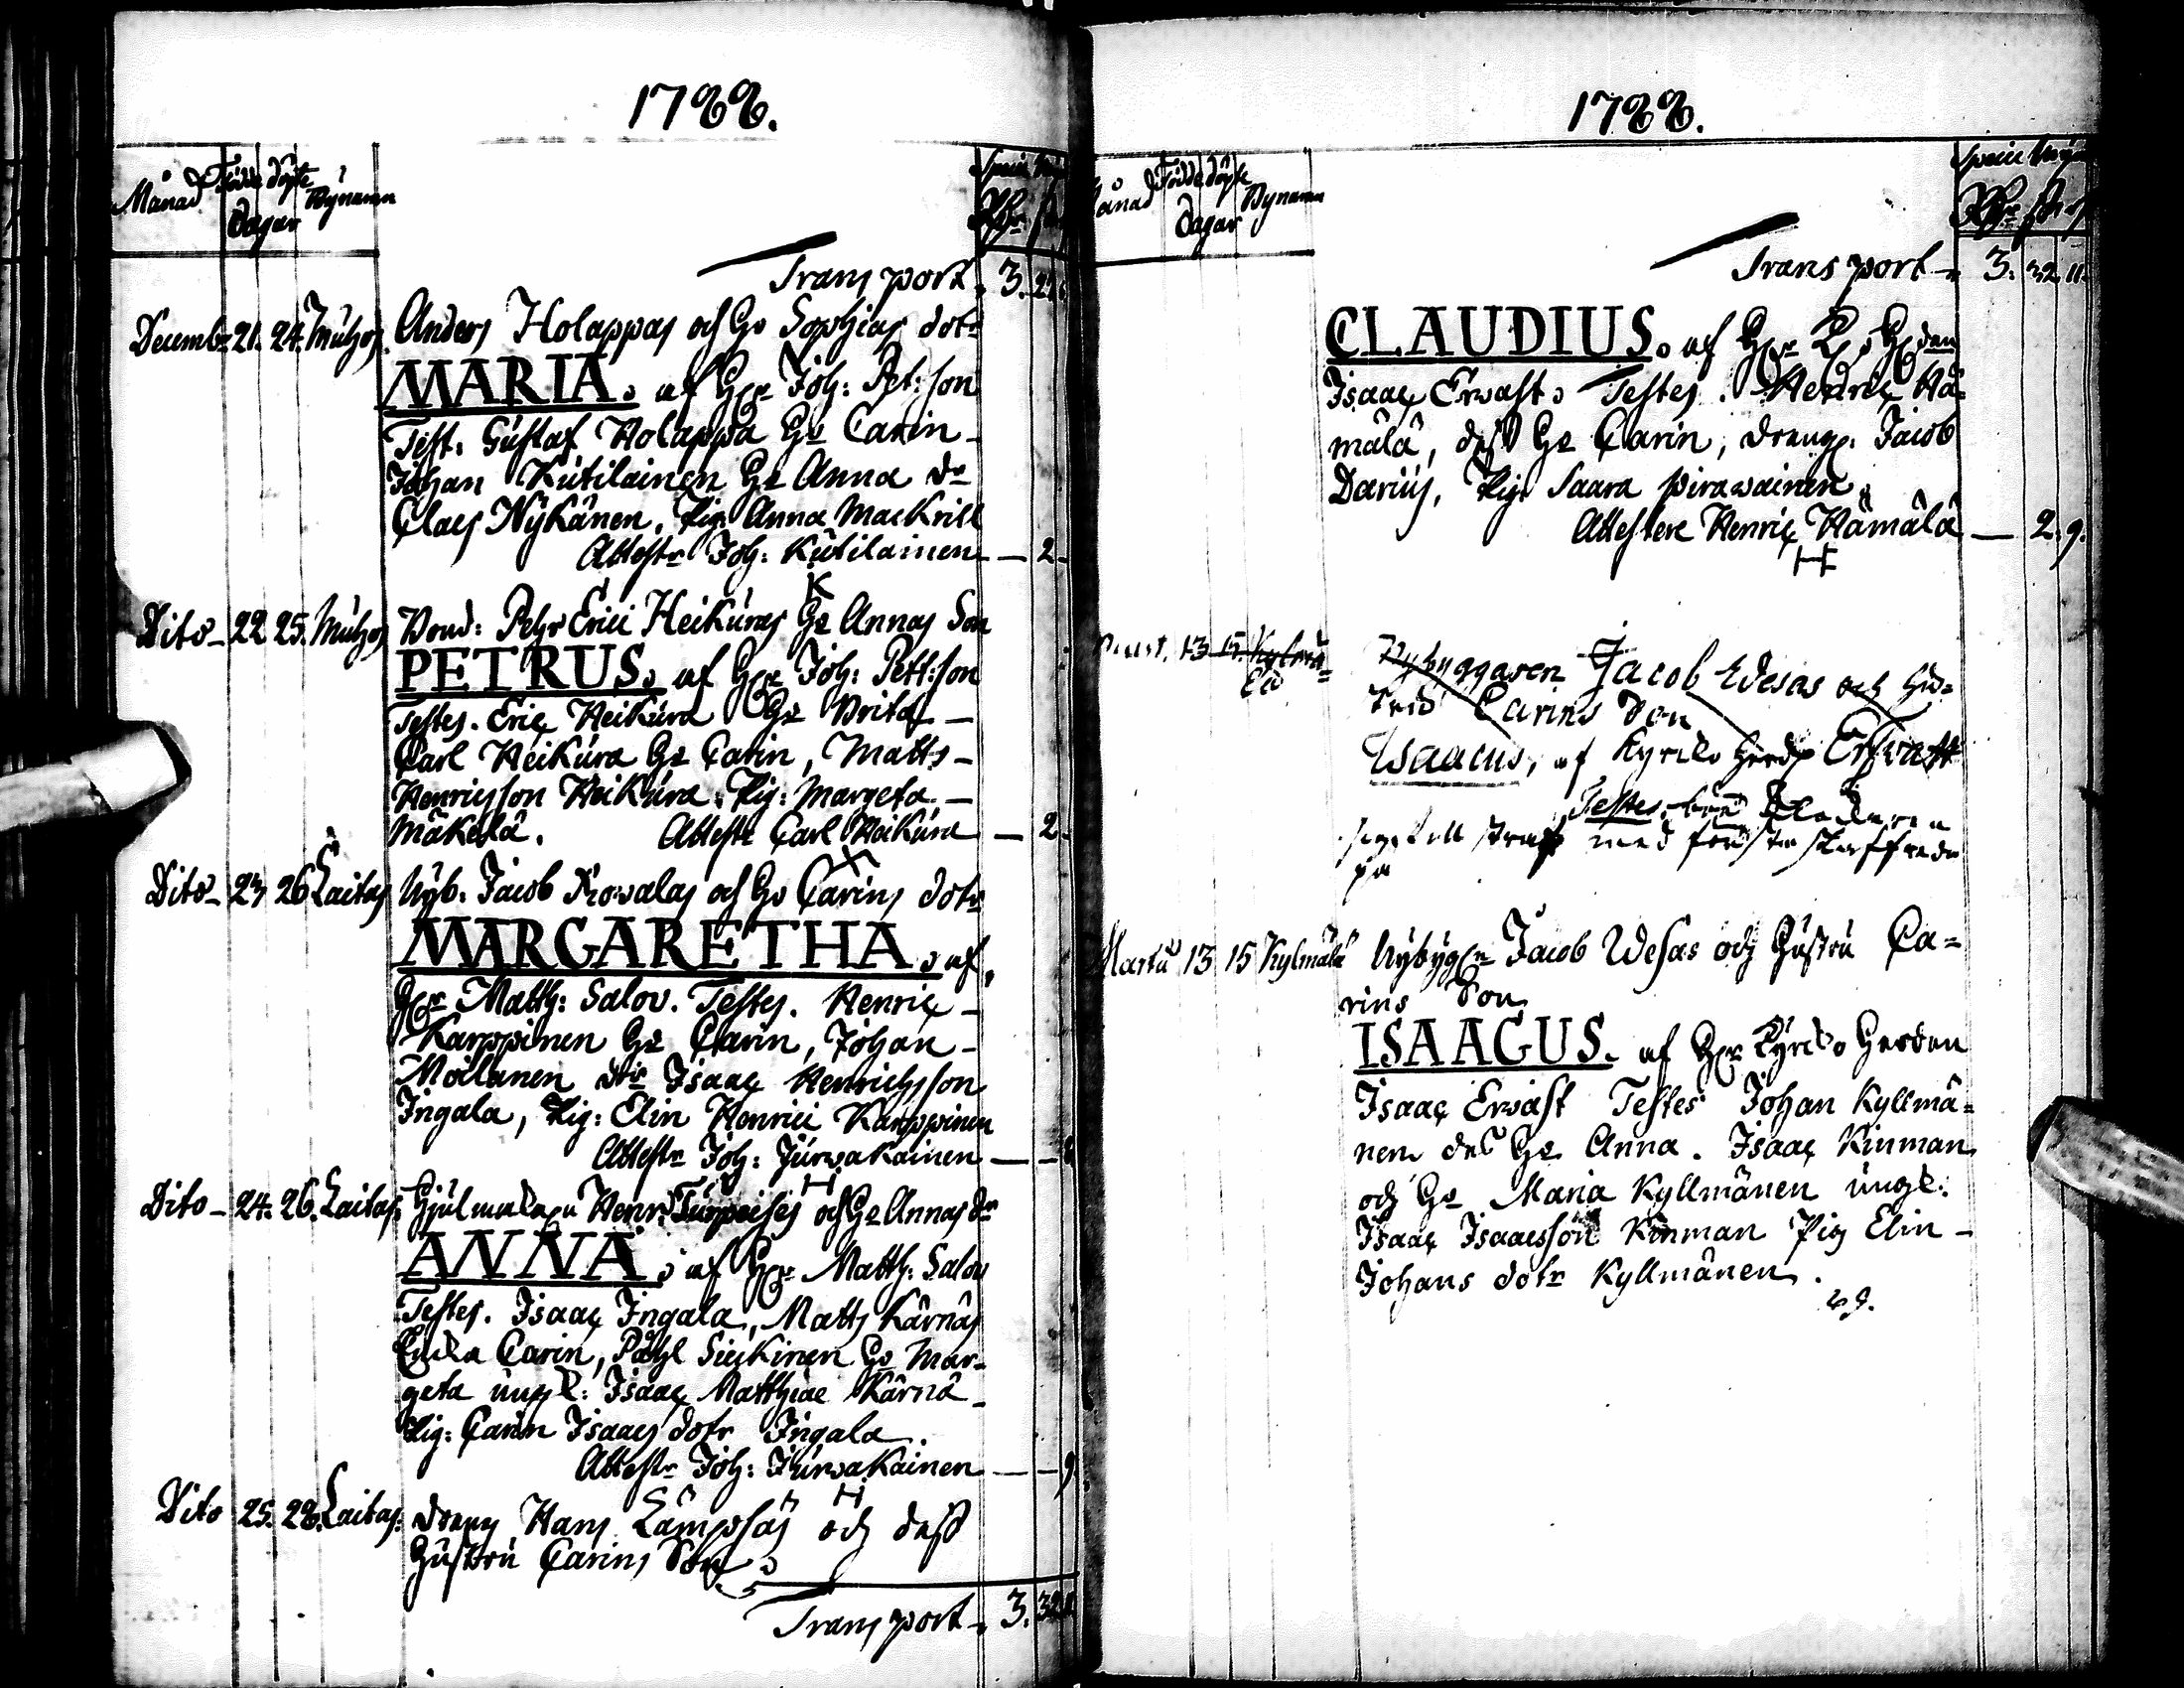 1788.
Månad Födde döpte Bynamn
Dagar
Transport 3.
Decembr 21. 24. Muhos Anders Holappas och Hu Sophias dotr
MARIA. af Joh: Pet:son
Test: Gustaf Holappa Hu Carin
Johan Kutilainen Hu Anna Dr
Claes Nykänen. Pig: Anna Mackrill
Attestr Joh: Kutilainen — 2
K
Dito 22 25. Muhos Bond: Pehr Erici Heikuras Hu Annas Son
PETRUS. af Joh: Pett:son
Testes. Eric Heikura Hu Brita
Carl Heikura Hu Carin, Matts
Henricsson Heikura. Pig: Margeta
Mäkelä. Atteste Carl Heikura — 2
Dito 23 26 Laitas Nyb: Jacob Rowalas och Hu Carins dotr
MARGARETHA. af
Matth: Salov. Testes. Henric
Karppinen Hu Carin, Johan
Moilanen dr Isaac Henrichsson
Ingala, Pig: Elin Henrici Karppinen
Attestr Joh: Jurwakainen
H
Dito 24. 26. Laitas Henr: Turpeises och Hu Annas dr
ANNA. af Matth: Salov
Testes. Isaac Ingala, Matts Kärnäs
Enka Carin, Påhl Sieikinen Hu Mar-
geta ungk: Isaac Matthiae Kärnä
Pig: Carin Isaacs dotr Ingala
Attestr Joh: Jurwakainen — 9
H
Dito 25. 28. Laitas: dreng Hans Lämpsäs och dess
Hustru Carins Son
Transport 3. 32
1788.
Månad Födde döpte Bynamn
Dagar
Transport 3. 32 11
CLAUDIUS. af
Isaac Erwast. Testes. Henric Hä-
mälä, dess Hu Carin, dreng: Jacob
Darius, Pig: Saara Pirawainen
Attestere Henric Hämälä — 2. 9.
H
13 15. Kylmä- Nybyggaren Jacob Wesas och Hu-
stru Carins Son
Isaacus, af Kyrko Herd Erwast
Testes
med första
på
Martii 13 15 Kylmälä Nybygn Jacob Wesas och Hustru Ca-
rins Son
ISAACUS. af Kyrko Herden
Isaac Erwast Testes Johan Kyllmä-
nen des Hu Anna. Isaac Kinman
och Hu Maria Kyllmänen ungk:
Isaac Isaacsson Kinman Pig Elin
Johans dotr Kyllmänen.